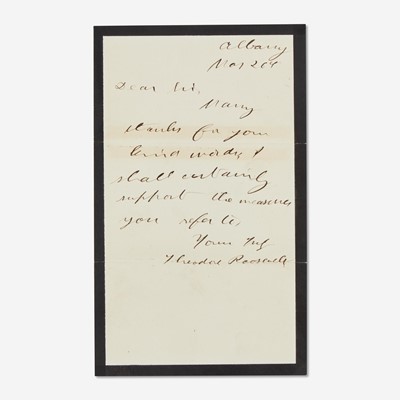 Albany
Mar 20th
Dear Sir,
Many
thanks for your
kind words; I
shall certainly
support the measures
you refer to,
Yours Truly
Theodore Roosevelt